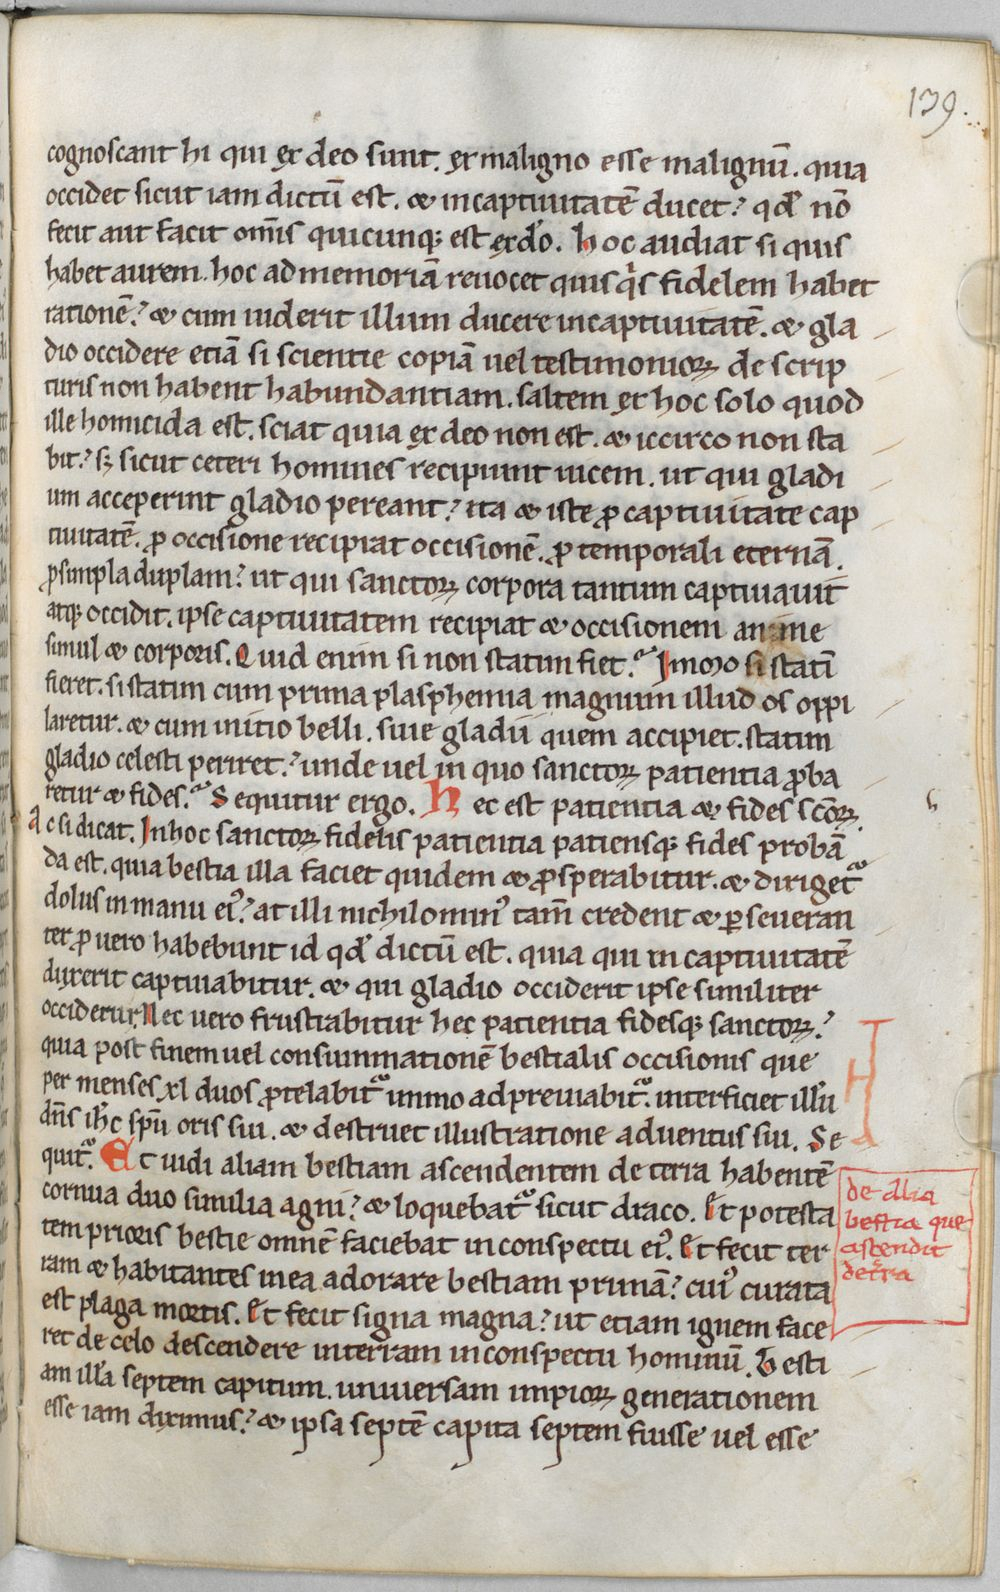 139.
cognoscant hi qui ex deo sunt. ex maligno esse malignū. quia
occidet sicut iam dictū est. & in captiuitatē ducet? qd̕ nō
fecit aut facit om̅is quicunq; est ex do̕. Hoc audiat si quis
habet aurem. hoc ad memoriā reuocet quisqͥs fidelem habet
rationē? & cum uiderit illum ducere in captiuitatē. & gla
dio occidere etiā si scientie copiā uel testimonioꝝ de scrip
turis non habent habundantiam. saltem ex hoc solo quod
ille homicida est. sciat quia ex deo non est. & iccirco non sta
bit? sꝫ sicut ceteri homines recipiunt uicem. ut qui gladi
um acceperint gladio pereant? ita & iste ꝓ captiuitate cap
tiuitatē. ꝓ occisione recipiat occisionē. ꝓ temporali eternā.
ꝓ simpla duplam? ut qui sanctoꝝ corpora tantum captiuauit
atq; occidit. ipse captiuitatem recipiat & occisionem anime
simul & corporis. Quid enim si non statim fiet? Immo si statī
fieret. si statim cum prima plasphemia magnum illud os oppi
laretur. & cum initio belli. siue gladii quem accipiet. statim
gladio celesti periret? unde uel in quo sanctoꝝ patientia ꝓba
retur & fides? Sequitur ergo. Hec est patientia & fides scōꝝ.
Ac si dicat. In hoc sanctoꝝ fidelis patientia patiensq; fides probā
da est. quia bestia illa faciet quidem & ꝓsperabitur. & diriget᷑
dolus in manu eiꝰ? at illi nichilominꝰ tam̅ credent & ꝑseueran
ter ꝓ uero habebunt id qd̕ dictū est. quia qui in captiuitatē
duxerit captiuabitur. & qui gladio occiderit ipse similiter
occidetur. Nec uero frustrabitur hec patientia fidesq; sanctoꝝ?
quia post finem uel consummationē bestialis occisionis que
per menses xl duos ꝓtelabit᷑ immo adpreuiabit᷑. interficiet illū
dn̅s ih̅c spū oris sui. & destruet illustratione aduentus sui. Se
quit᷑. Et uidi aliam bestiam ascendentem de terra habentē
cornua duo similia agni? & loquebat᷑ sicut draco. Et potesta
tem prioris bestie omnē faciebat in conspectu eiꝰ. Et fecit ter
ram & habitantes in ea adorare bestiam primā? cuiꝰ curata
est plaga mortis. Et fecit signa magna? ut etiam ignem face
ret de celo descendere in terram in conspectu hominū. Besti
am illā septem capitum. uniuersam impioꝝ generationem
esse iam diximus? & ipsa septē capita septem fuisse uel esse
de alia
bestia que
ascendit
de tr̅ra